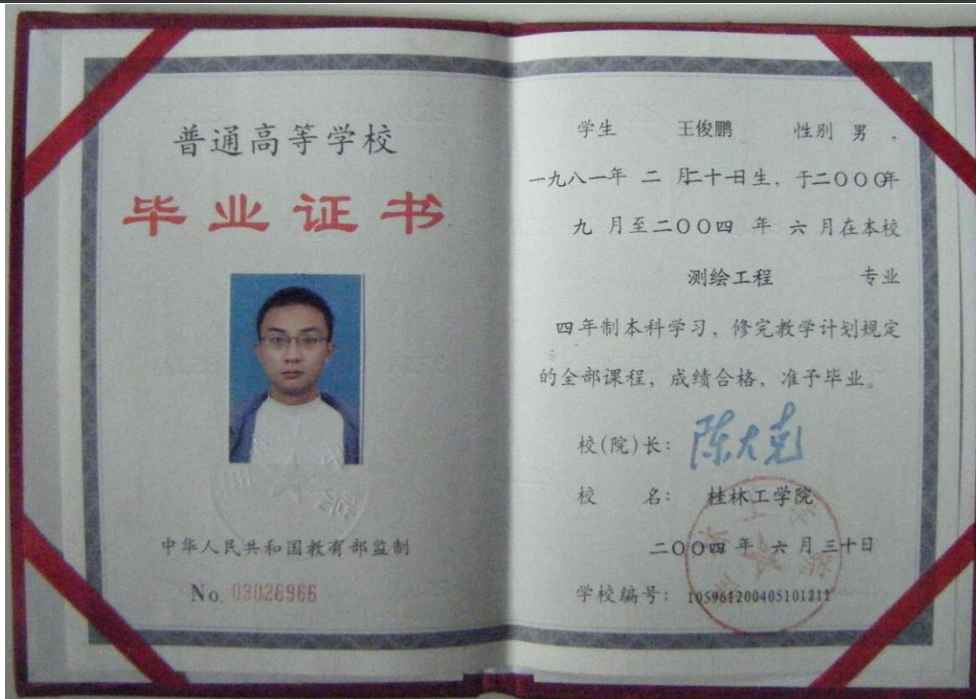 普通高等学校
毕业证书
中华人民共和国教育部监制
No. 03026966
学生 王俊鹏 性别 男 ,
一九八一年 二 月二十日生, 于二〇〇〇年
九 月至二〇〇四 年 六 月在本校
测绘工程 专业
四年制本科学习, 修完教学计划规定
的全部课程, 成绩合格, 准予毕业。
校(院)长: 陈大克
校 名: 桂林工学院
二〇〇四 年 六 月 三十日
学校编号: 105961200405101211